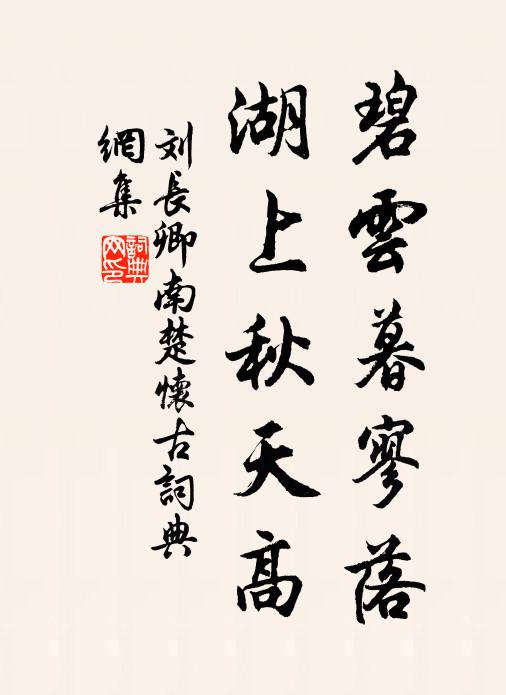 碧雲暮寥落
湖上秋天高
刘長卿南楚懷古詞典
網集
詞典
网印